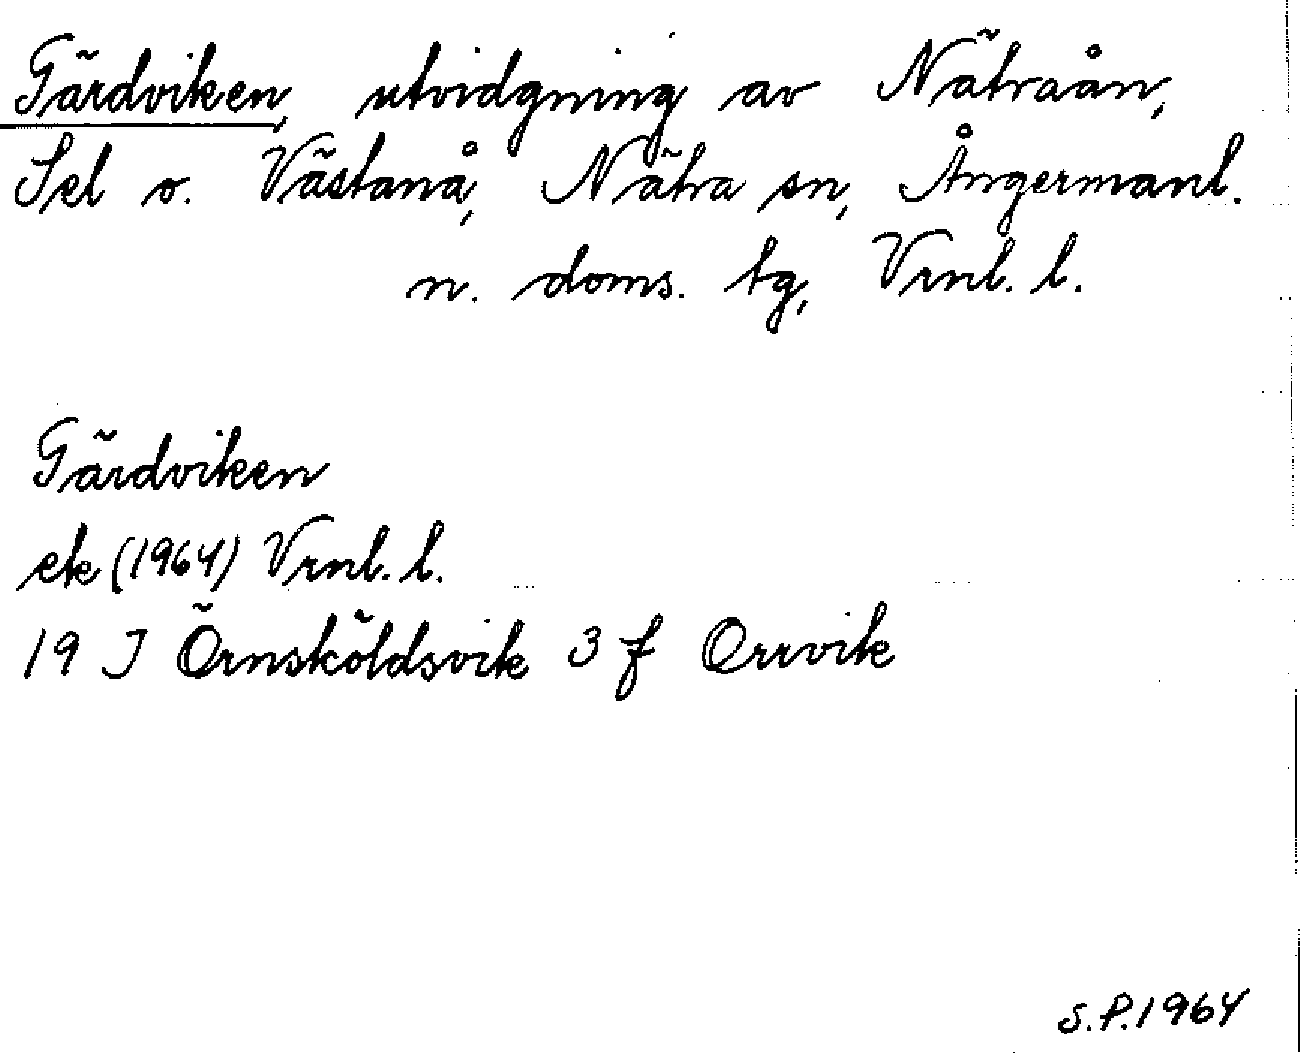 Gärdviken, utvidgning av Nätraån,
Sel o. Västanå, Nätra sn, Ångermanl.
n. doms. tg, Vrnl. l.
Gärdviken
ek (1964) Vrnl. l.
19 J Örnsköldsvik 3 f Orrvik
S.P.1964